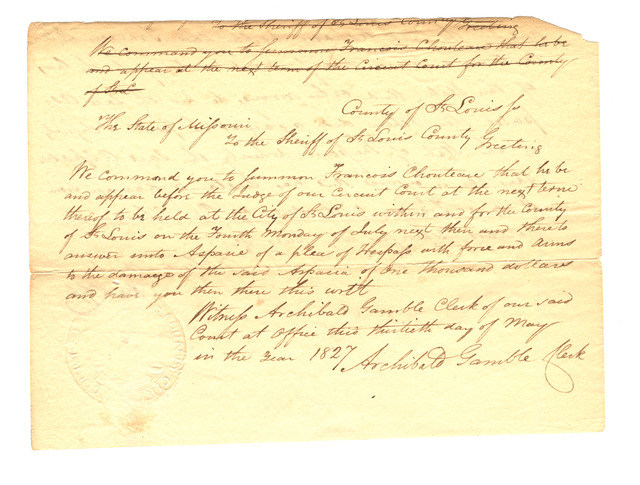 To the Sheriff of St Louis County Greeting
We command you to summon Francois Chouteau that he be
and appear at the next term of the Circuit Court for the County
of St L
County of St Louis ss
The State of Missouri
To the Sheriff of St Louis County Greeting
We command you to summon Francois Chouteau that he be
and appear before the Judge of our Circuit Court at the next term
thereof to be held at the City of St Louis within and for the County
of St Louis on the Fourth Monday of July next then and there to
answer unto Aspasia of a plea of Trespass with force and arms
to the damage of the said Aspasia of One thousand dollars
and have you then there this writ
Witness Archibald Gamble Clerk of our said
Court at Office this thirtieth day of May
in the Year 1827
Archibald Gamble Clerk